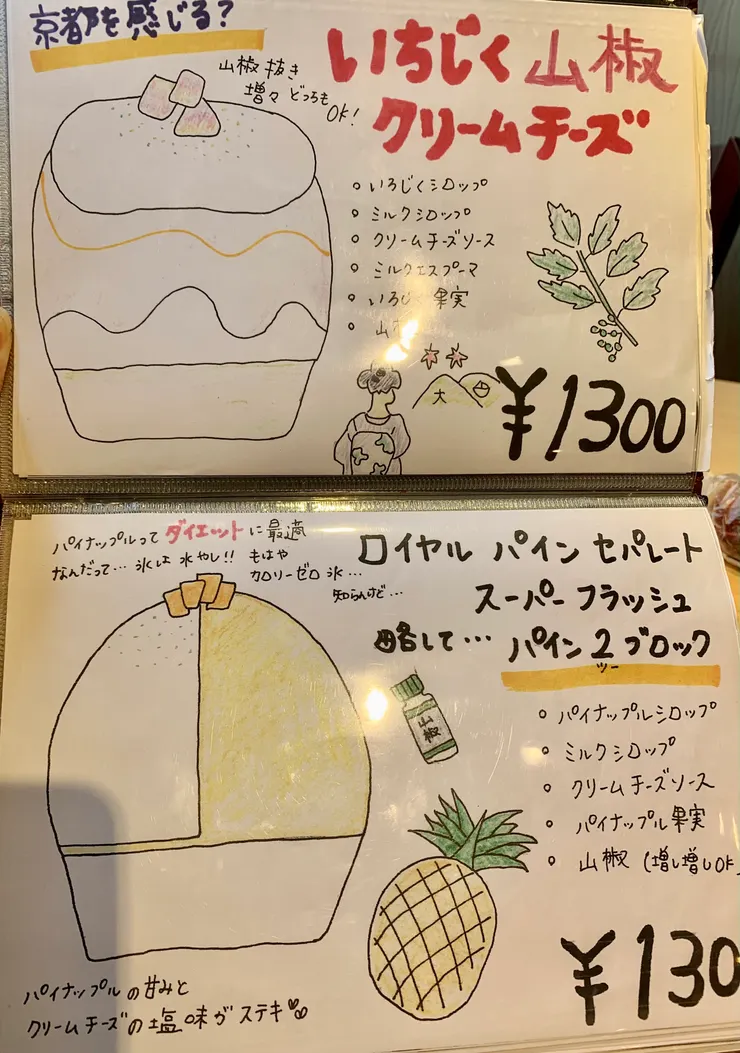 京都を感じる?
いちじく山椒
クリームチーズ
山椒抜き
増々どっちも
OK!
いちじくシロップ
ミルクシロップ
クリームチーズソース
ミルクエスプーマ
いちじく果実
山
大
¥1300
パイナップルってダイエットに最適
なんだって… 氷は水やし!! もはや
カロリーゼロ氷…
知らんけど…
ロイヤル パイン セパレート
スーパーフラッシュ
略して… パイン2ブロック
ツー
山椒
パイナップルシロップ
ミルクシロップ
クリームチーズソース
パイナップル果実
山椒 (増し増しOK
¥130
パイナップルの甘みと
クリームチーズの塩味がステキ